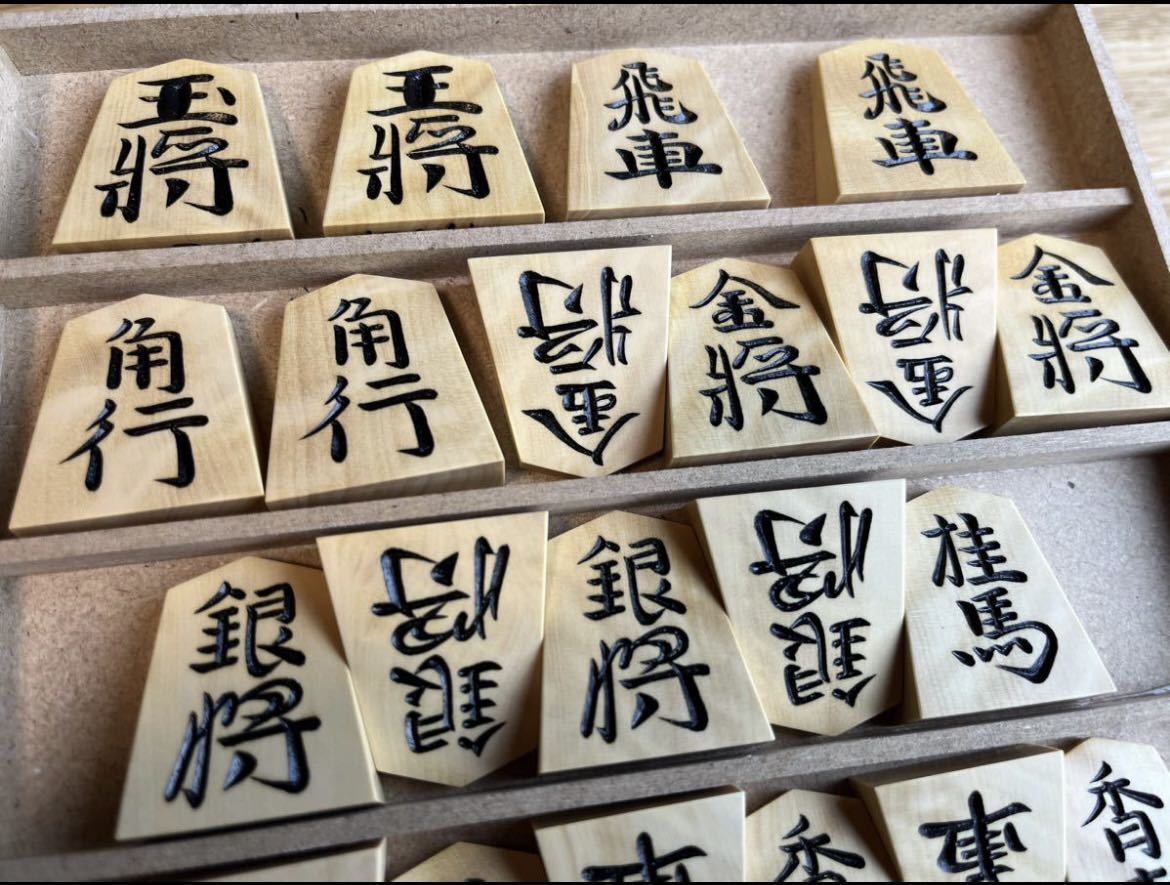 玉將
王將
飛車
飛車
角行
角行
金將
金將
金將
金將
銀將
銀將
銀將
銀將
桂馬
車
香
車
香